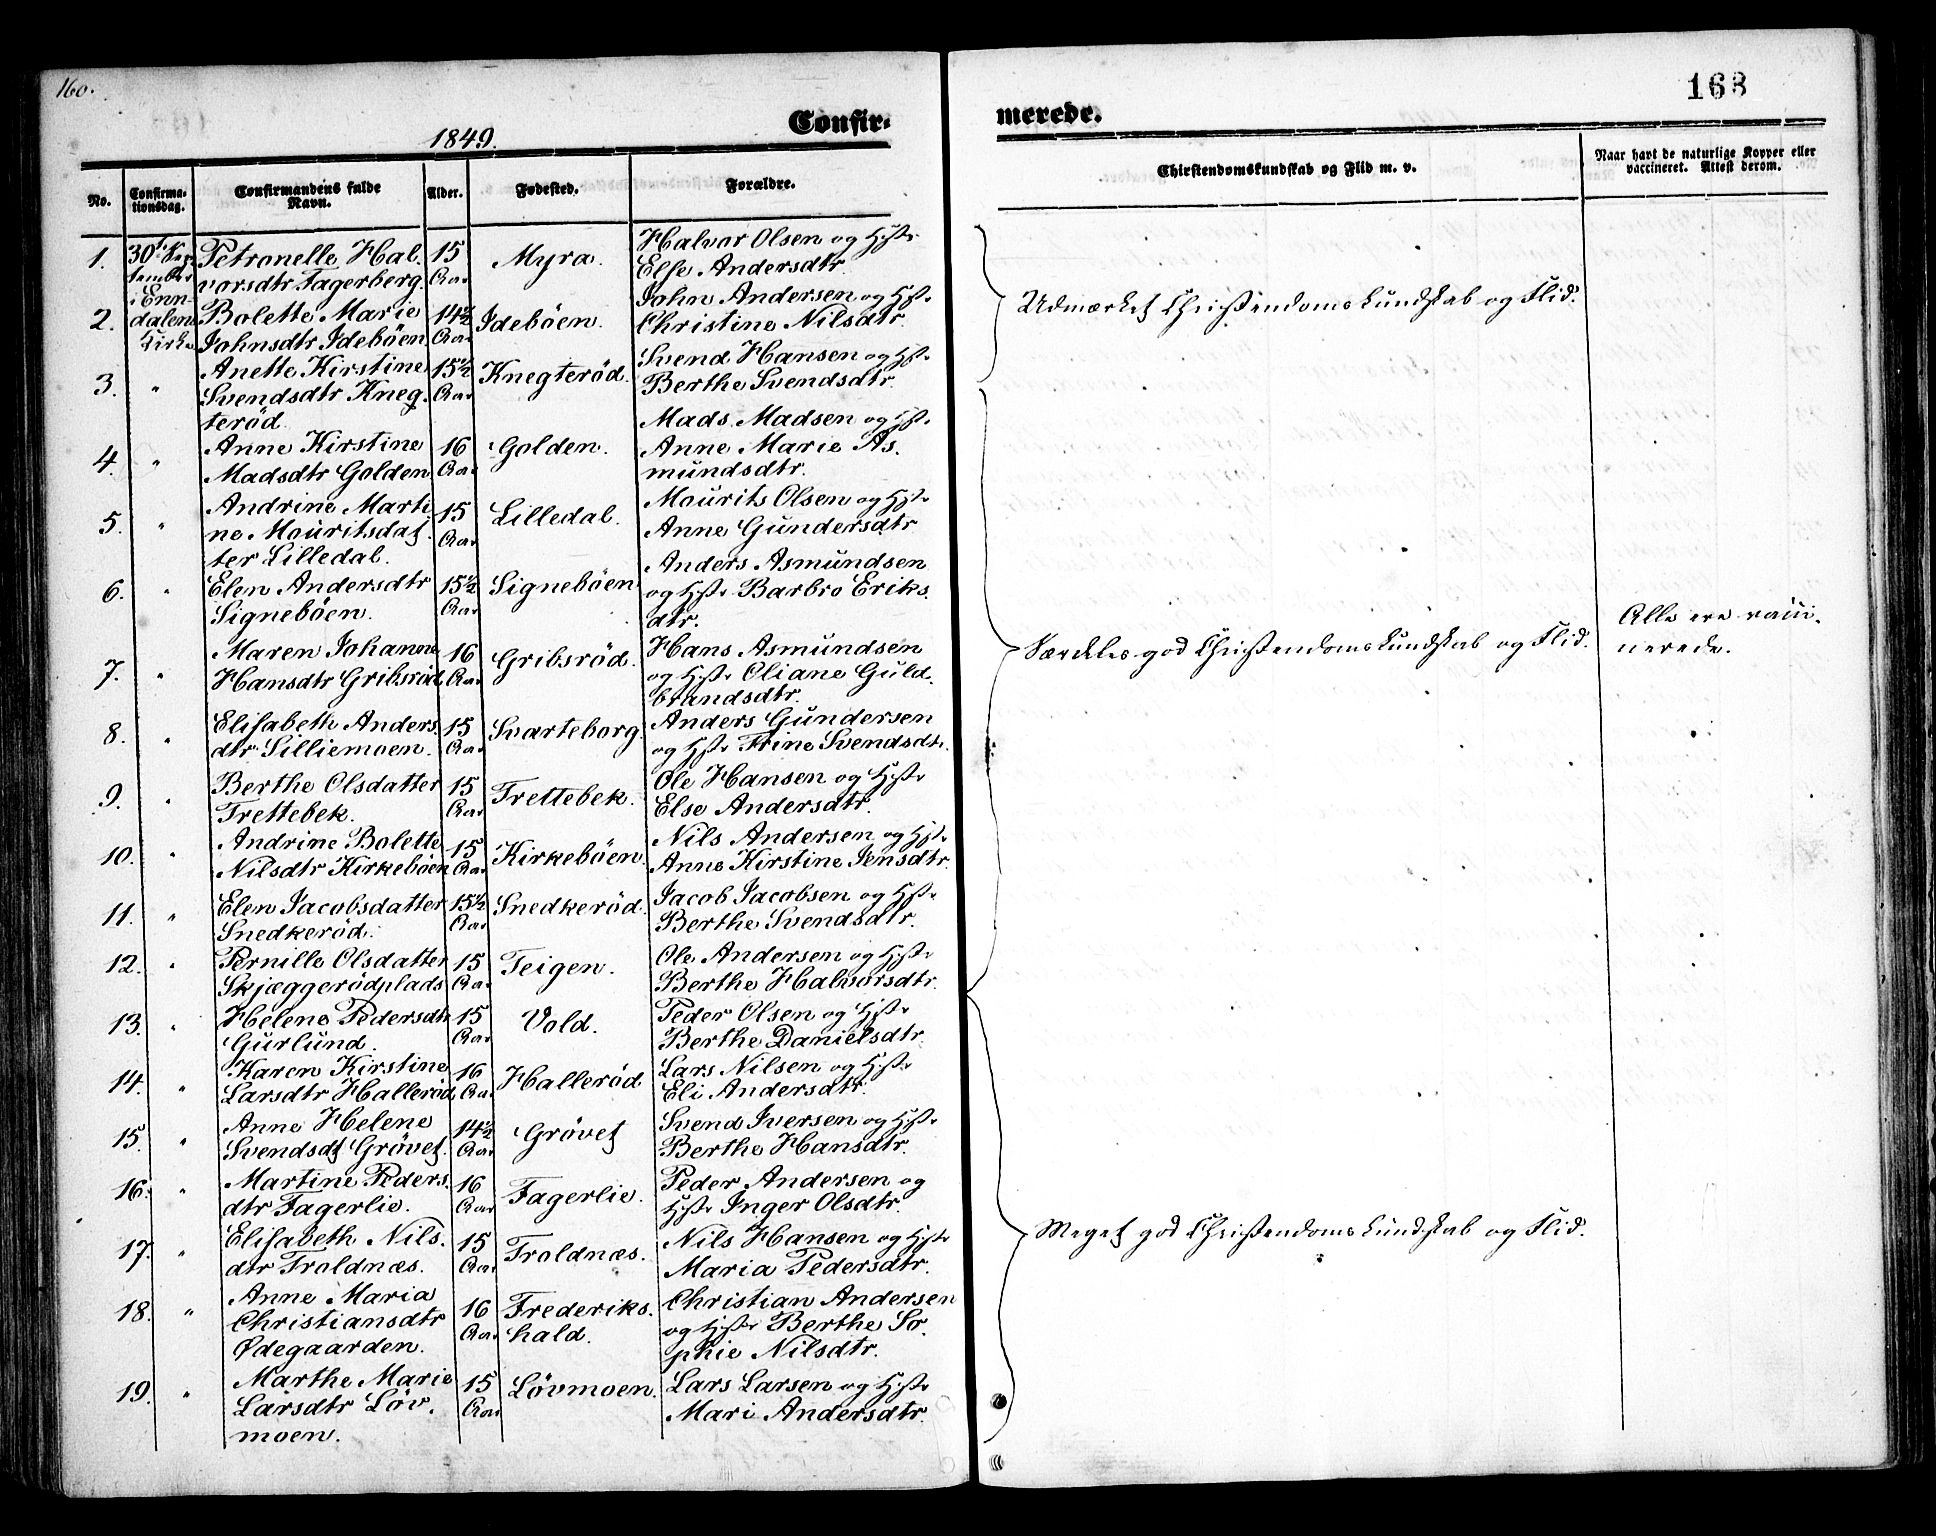 160.
168
1849.
Confir=
merede.
No.
Confirma-
tionsdag.
Confirmandens fulde
Navn.
Alder.
Fødested.
Forældre.
Chirstendomskundskab og Flid m. v.
Naar havt de naturlige Kopper eller
vaccineret. Attest derom.
1. 30te Sep-
tember
i Enn-
dalens
Kirke
Petronelle Hal.
vorsdtr Fagerberg.
15
Aar
Myra.
Halvor Olsen og Hst.
Else Andersdtr.
2.
Bolette Marie
Johnsdtr Idebøen.
14½
Aar
Idebøen.
John Andersen og Hst.
Christine Nilsdtr.
3. "
Anette Kirstine
Svendsdtr Kneg.
terød.
15½
Aar
Knegterød.
Svend Hansen og Hst.
Berthe Svendsdtr.
4. "
Anne Kirstine
Madsdtr Golden
16
Aar
Golden.
Mads Madsen og Hst.
Anne Marie As.
mundsdtr.
5. "
Andrine Marti.
ne Mouritsdat.
ter Lilledal.
15
Aar
Lilledal.
Mourits Olsen og Hst.
Anne Gundersdtr
6. "
Elen Andersdtr
Signebøen.
15½
Aar
Signebøen
Anders Asmundsen
og Hst. Barbro Eriks.
dtr.
7. "
Maren Johanne
Hansdtr Gribsrød
16
Aar
Gribsrød.
Hans Asmundsen
og Hst. Oliane Guld.
brandsdtr.
8. "
Elisabeth Anders.
dtr Silliemoen.
15
Aar
Svarteborg.
Anders Gundersen
og Hst. Trine Svendsdt.
9. "
Berthe Olsdatter
Trettebek.
15
Aar
Trettebek.
Ole Hansen og Hst.
Else Andersdtr.
10. "
Andrine Bolette
Nilsdtr Kirkebøen
15
Aar
Kirkebøen.
Nils Andersen og Hst.
Anne Kirstine Jensdtr.
11. "
Elen Jacobsdatter
Snedkerød.
15½
Aar
Snedkerød.
Jacob Jacobsen og Hst.
Berthe Svendsdtr.
12. "
Pernille Olsdatter
Skjæggerødplads
15
Aar
Teigen.
Ole Andersen og Hst.
Berthe Halvorsdtr.
13. "
Helene Pedersdtr
Gurlund.
15
Aar
Vold.
Peder Olsen og Hst.
Berthe Danielsdtr.
14. "
Karen Kirstine
Larsdtr Hallerød
16
Aar
Hallerød
Lars Nilsen og Hst.
Eli Andersdtr.
15. "
Anne Helene
Svendsdt Grøvet.
14½
Aar
Grøvet
Svend Iversen og Hst.
Berthe Hansdtr.
16. "
Martine Peders.
dtr Fagerlie.
16
Aar
Fagerlie.
Peder Andersen og
Hst. Inger Olsdtr.
17. "
Elisabeth Nils.
dtr Troldnæs.
15
Aar
Troldnæs.
Nils Hansen og Hst.
Maria Pedersdtr.
18. "
Anne Maria
Christiansdtr
Ødegaarden.
16
Aar
Frederiks.
hald.
Christian Andersen
og Hst. Berthe So.
phie Nilsdtr.
19. "
Marthe Marie
Larsdtr Løv.
moen.
15
Aar
Løvmoen.
Lars Larsen og Hst.
Mari Andersdtr.
Udmærket Christendomskundskab og Flid.
Særdeles god Christendomskundskab og Flid.
Meget god Christendomskundskab og Flid.
Alle ere vacci.
nerede.